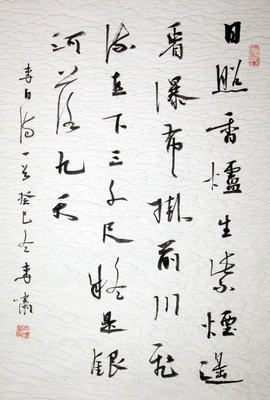 日照香爐生紫煙遙
看瀑布掛前川飛
流直下三千尺疑是銀
河落九天
李白詩一首癸巳冬李嘯